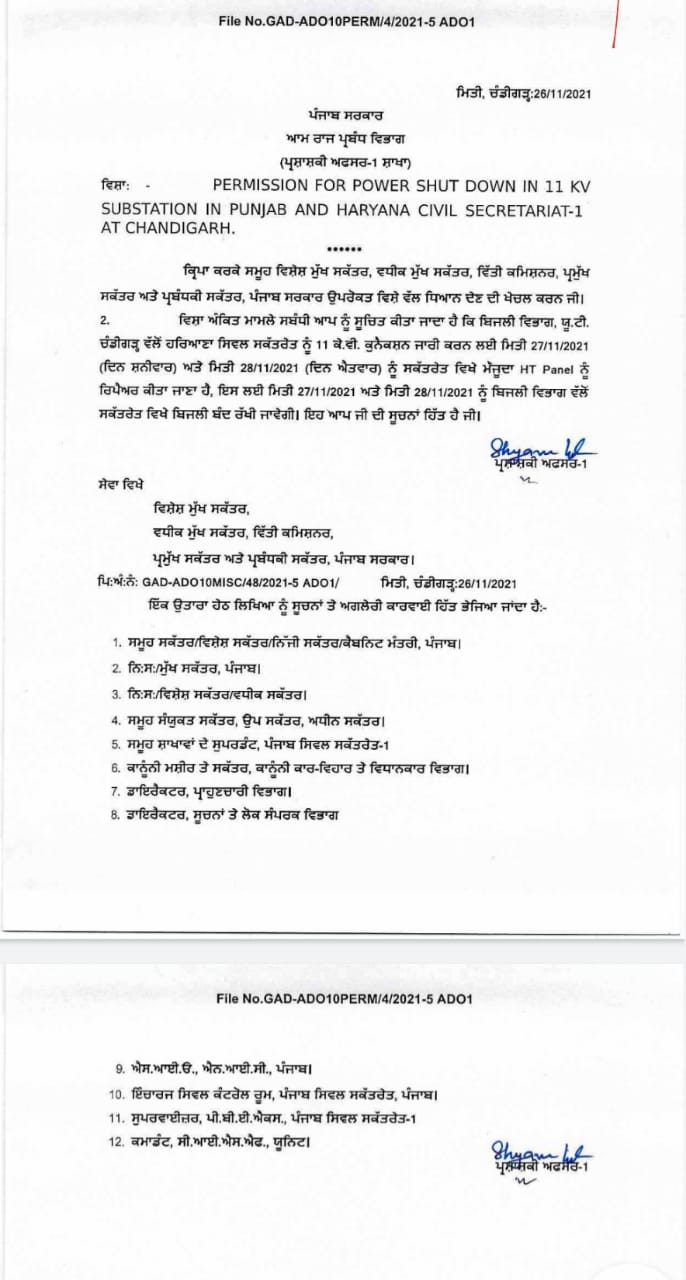 File No.GAD-ADO10PERM/4/2021-5 ADO1
ਮਿਤੀ, ਚੰਡੀਗੜ੍ਹ:26/11/2021
ਪੰਜਾਬ ਸਰਕਾਰ
ਆਮ ਰਾਜ ਪ੍ਰਬੰਧ ਵਿਭਾਗ
(ਪ੍ਰਸ਼ਾਸ਼ਕੀ ਅਫਸਰ-1 ਸ਼ਾਖਾ)
ਵਿਸ਼ਾ: - PERMISSION FOR POWER SHUT DOWN IN 11 KV
SUBSTATION IN PUNJAB AND HARYANA CIVIL SECRETARIAT-1
AT CHANDIGARH.
••••••
ਕ੍ਰਿਪਾ ਕਰਕੇ ਸਮੂਹ ਵਿਸ਼ੇਸ਼ ਮੁੱਖ ਸਕੱਤਰ, ਵਧੀਕ ਮੁੱਖ ਸਕੱਤਰ, ਵਿੱਤੀ ਕਮਿਸ਼ਨਰ, ਪ੍ਰਮੁੱਖ
ਸਕੱਤਰ ਅਤੇ ਪ੍ਰਬੰਧਕੀ ਸਕੱਤਰ, ਪੰਜਾਬ ਸਰਕਾਰ ਉਪਰੋਕਤ ਵਿਸ਼ੇ ਵੱਲ ਧਿਆਨ ਦੇਣ ਦੀ ਖੇਚਲ ਕਰਨ ਜੀ।
2. ਵਿਸ਼ਾ ਅੰਕਿਤ ਮਾਮਲੇ ਸਬੰਧੀ ਆਪ ਨੂੰ ਸੂਚਿਤ ਕੀਤਾ ਜਾਂਦਾ ਹੈ ਕਿ ਬਿਜਲੀ ਵਿਭਾਗ, ਯੂ.ਟੀ.
ਚੰਡੀਗੜ੍ਹ ਵੱਲੋਂ ਹਰਿਆਣਾ ਸਿਵਲ ਸਕੱਤਰੇਤ ਨੂੰ 11 ਕੇ.ਵੀ. ਕੁਨੈਕਸ਼ਨ ਜਾਰੀ ਕਰਨ ਲਈ ਮਿਤੀ 27/11/2021
(ਦਿਨ ਸ਼ਨੀਵਾਰ) ਅਤੇ ਮਿਤੀ 28/11/2021 (ਦਿਨ ਐਤਵਾਰ) ਨੂੰ ਸਕੱਤਰੇਤ ਵਿਖੇ ਮੌਜੂਦਾ HT Panel ਨੂੰ
ਰਿਪੈਅਰ ਕੀਤਾ ਜਾਣਾ ਹੈ, ਇਸ ਲਈ ਮਿਤੀ 27/11/2021 ਅਤੇ ਮਿਤੀ 28/11/2021 ਨੂੰ ਬਿਜਲੀ ਵਿਭਾਗ ਵੱਲੋਂ
ਸਕੱਤਰੇਤ ਵਿਖੇ ਬਿਜਲੀ ਬੰਦ ਰੱਖੀ ਜਾਵੇਗੀ। ਇਹ ਆਪ ਜੀ ਦੀ ਸੂਚਨਾਂ ਹਿੱਤ ਹੈ ਜੀ।
ਪ੍ਰਸ਼ਾਸ਼ਕੀ ਅਫਸਰ-1
ਸੇਵਾ ਵਿਖੇ
ਵਿਸ਼ੇਸ਼ ਮੁੱਖ ਸਕੱਤਰ,
ਵਧੀਕ ਮੁੱਖ ਸਕੱਤਰ, ਵਿੱਤੀ ਕਮਿਸ਼ਨਰ,
ਪ੍ਰਮੁੱਖ ਸਕੱਤਰ ਅਤੇ ਪ੍ਰਬੰਧਕੀ ਸਕੱਤਰ, ਪੰਜਾਬ ਸਰਕਾਰ।
ਪਿ:ਅੰ:ਨੰ: GAD-ADO10MISC/48/2021-5 ADO1/ ਮਿਤੀ, ਚੰਡੀਗੜ੍ਹ:26/11/2021
ਇੱਕ ਉਤਾਰਾ ਹੇਠ ਲਿਖਿਆ ਨੂੰ ਸੂਚਨਾਂ ਤੇ ਅਗਲੇਰੀ ਕਾਰਵਾਈ ਹਿੱਤ ਭੇਜਿਆ ਜਾਂਦਾ ਹੈ:-
1. ਸਮੂਹ ਸਕੱਤਰ/ਵਿਸ਼ੇਸ਼ ਸਕੱਤਰ/ਨਿੱਜੀ ਸਕੱਤਰ/ਕੈਬਨਿਟ ਮੰਤਰੀ, ਪੰਜਾਬ।
2. ਨਿ:ਸ:/ਮੁੱਖ ਸਕੱਤਰ, ਪੰਜਾਬ।
3. ਨਿ:ਸ:/ਵਿਸ਼ੇਸ਼ ਸਕੱਤਰ/ਵਧੀਕ ਸਕੱਤਰ।
4. ਸਮੂਹ ਸੰਯੁਕਤ ਸਕੱਤਰ, ਉਪ ਸਕੱਤਰ, ਅਧੀਨ ਸਕੱਤਰ।
5. ਸਮੂਹ ਸ਼ਾਖਾਵਾਂ ਦੇ ਸੁਪਰਡੰਟ, ਪੰਜਾਬ ਸਿਵਲ ਸਕੱਤਰੇਤ-1
6. ਕਾਨੂੰਨੀ ਮਸ਼ੀਰ ਤੇ ਸਕੱਤਰ, ਕਾਨੂੰਨੀ ਕਾਰ-ਵਿਹਾਰ ਤੇ ਵਿਧਾਨਕਾਰ ਵਿਭਾਗ।
7. ਡਾਇਰੈਕਟਰ, ਪ੍ਰਾਹੁਣਚਾਰੀ ਵਿਭਾਗ।
8. ਡਾਇਰੈਕਟਰ, ਸੂਚਨਾਂ ਤੇ ਲੋਕ ਸੰਪਰਕ ਵਿਭਾਗ
File No.GAD-ADO10PERM/4/2021-5 ADO1
9. ਐਸ.ਆਈ.ਓ., ਐਨ.ਆਈ.ਸੀ., ਪੰਜਾਬ।
10. ਇੰਚਾਰਜ ਸਿਵਲ ਕੰਟਰੋਲ ਰੂਮ, ਪੰਜਾਬ ਸਿਵਲ ਸਕੱਤਰੇਤ, ਪੰਜਾਬ।
11. ਸੁਪਰਵਾਈਜ਼ਰ, ਪੀ.ਬੀ.ਈ.ਐਕਸ., ਪੰਜਾਬ ਸਿਵਲ ਸਕੱਤਰੇਤ-1
12. ਕਮਾਡੰਟ, ਸੀ.ਆਈ.ਐਸ.ਐਫ., ਯੂਨਿਟ।
ਪ੍ਰਸ਼ਾਸ਼ਕੀ ਅਫਸਰ-1